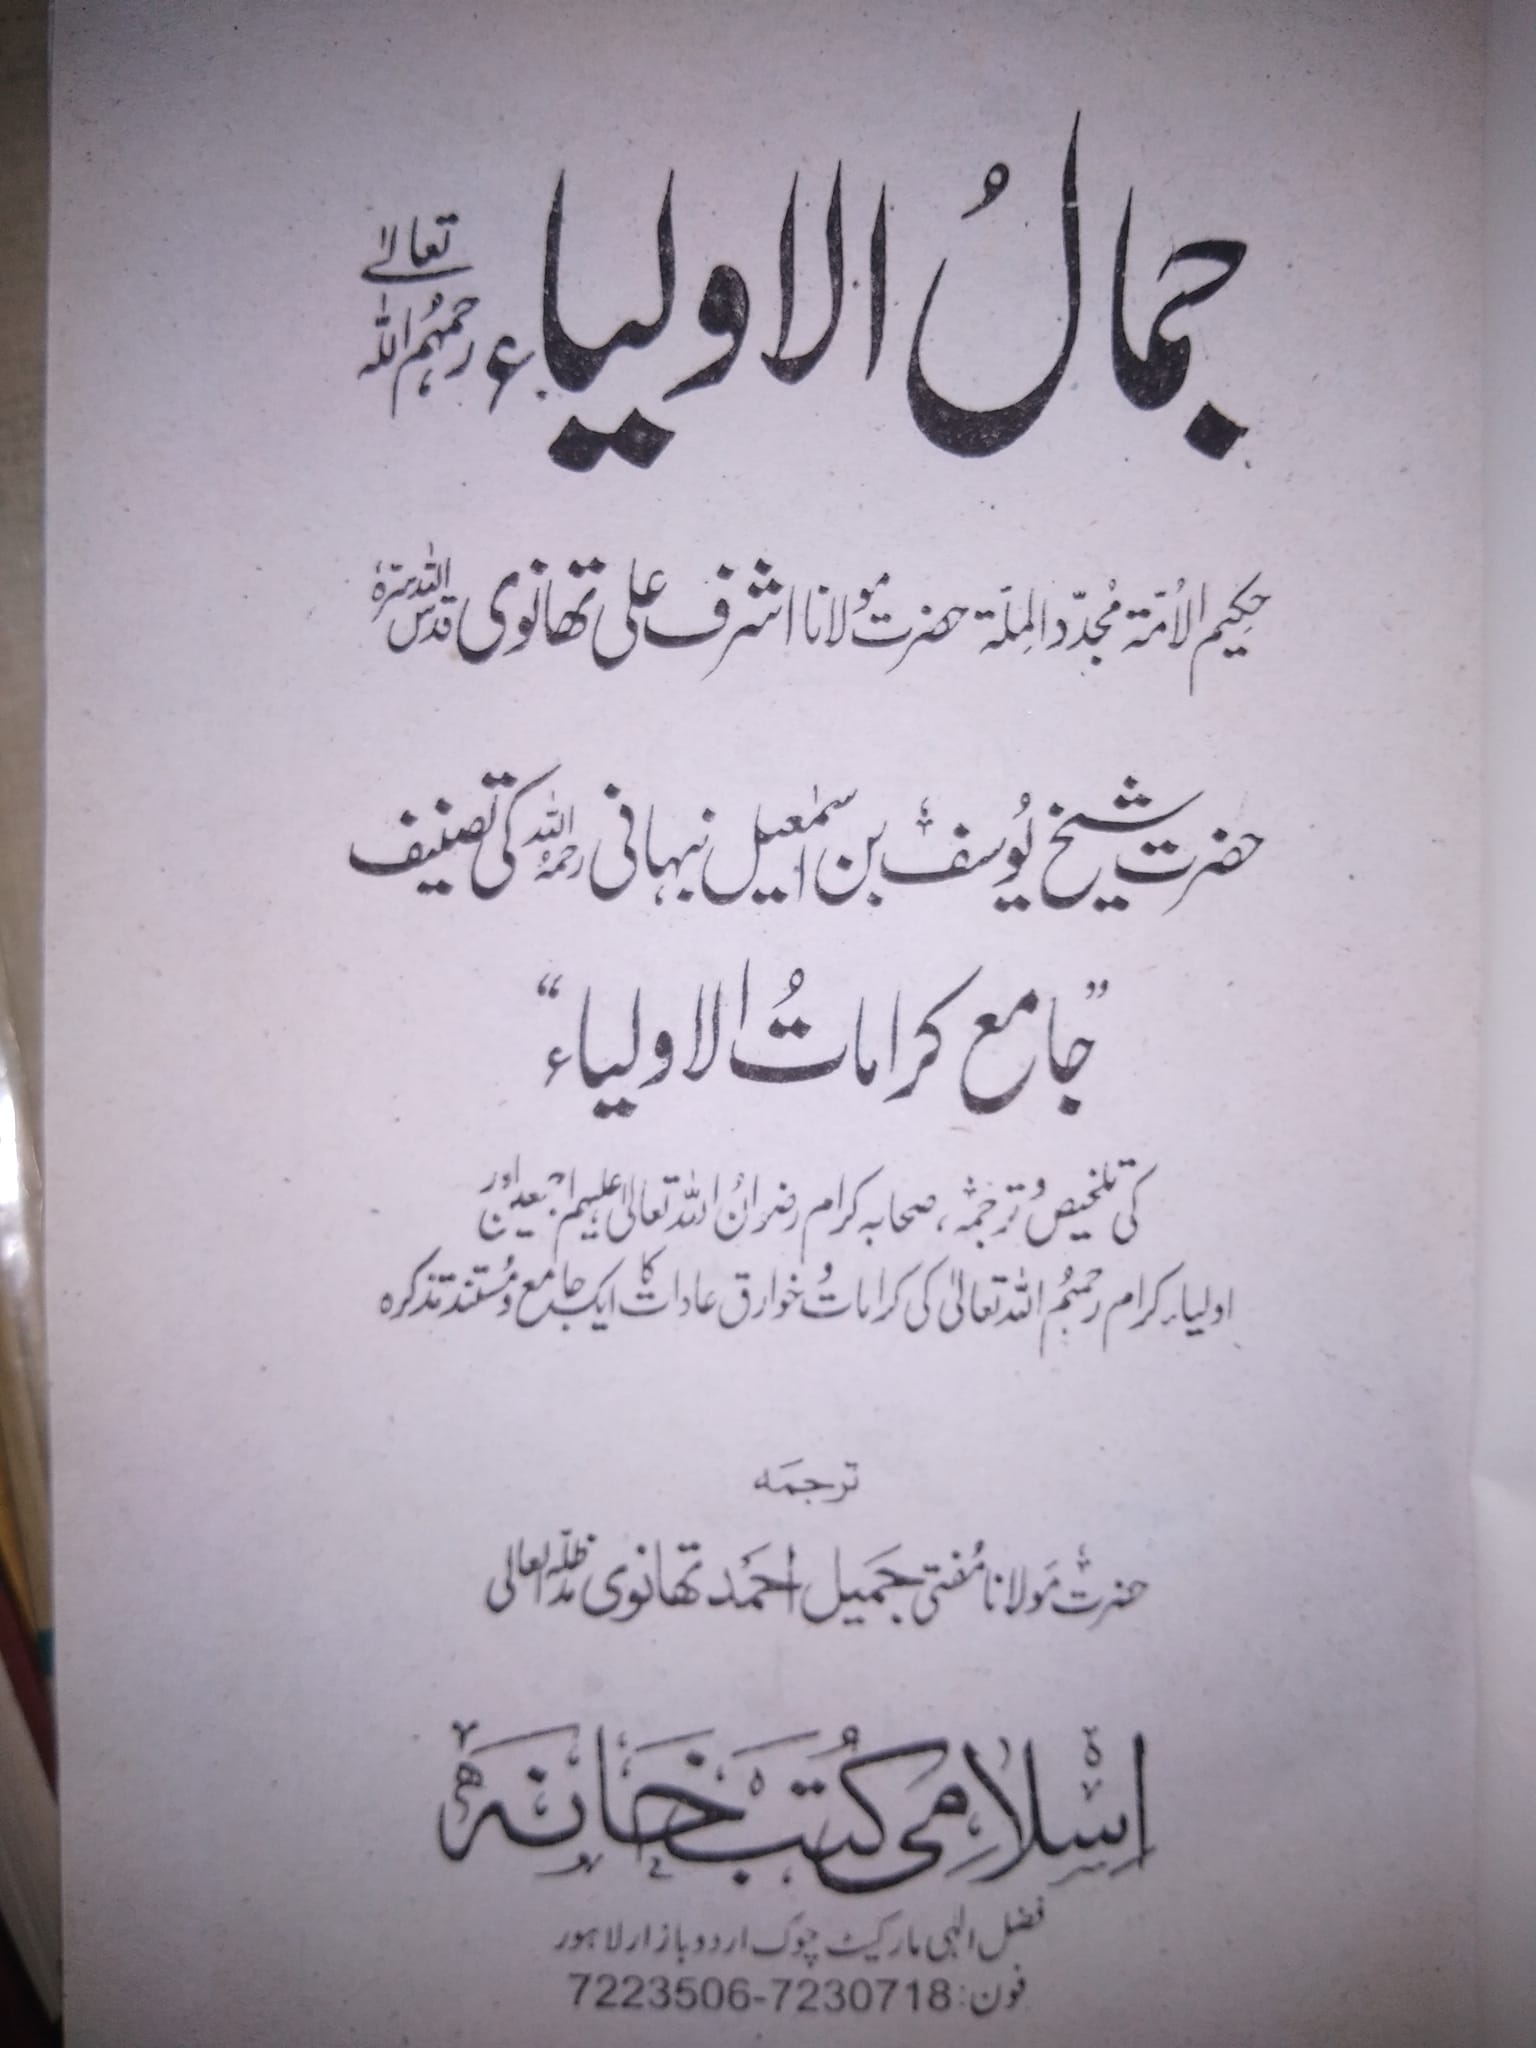 جمالُ الاولیاء رحمہُم اللہ تعالےٰ
حکیم الاُمّۃ مُجدّد المِلّۃ حضرت مولانا اشرف علی تھانوی قدس اللہ سرہٗ
حضرت شیخ یُوسف بن اسمٰعیل نبہانی رحمہُ اللہ کی تصنیف
”جامع کراماتُ الاولیاء“
کی تلخیص و ترجمہ، صحابہ کرام رضوانُ اللہ تعالیٰ علیہم اجمعین اور
اولیاء کرام رحمہُم اللہ تعالیٰ کی کرامات و خوارق عادات کا ایک جامع و مُستند تذکرہ
ترجمہ
حضرت مَولانا مُفتی جَمیل احمَد تھانوی مدظلّہ العالی
اِسْلامِی کُتَب خَانَہ
فضل الہی مارکیٹ چوک اردو بازار لاہور
فون: 7223506-7230718